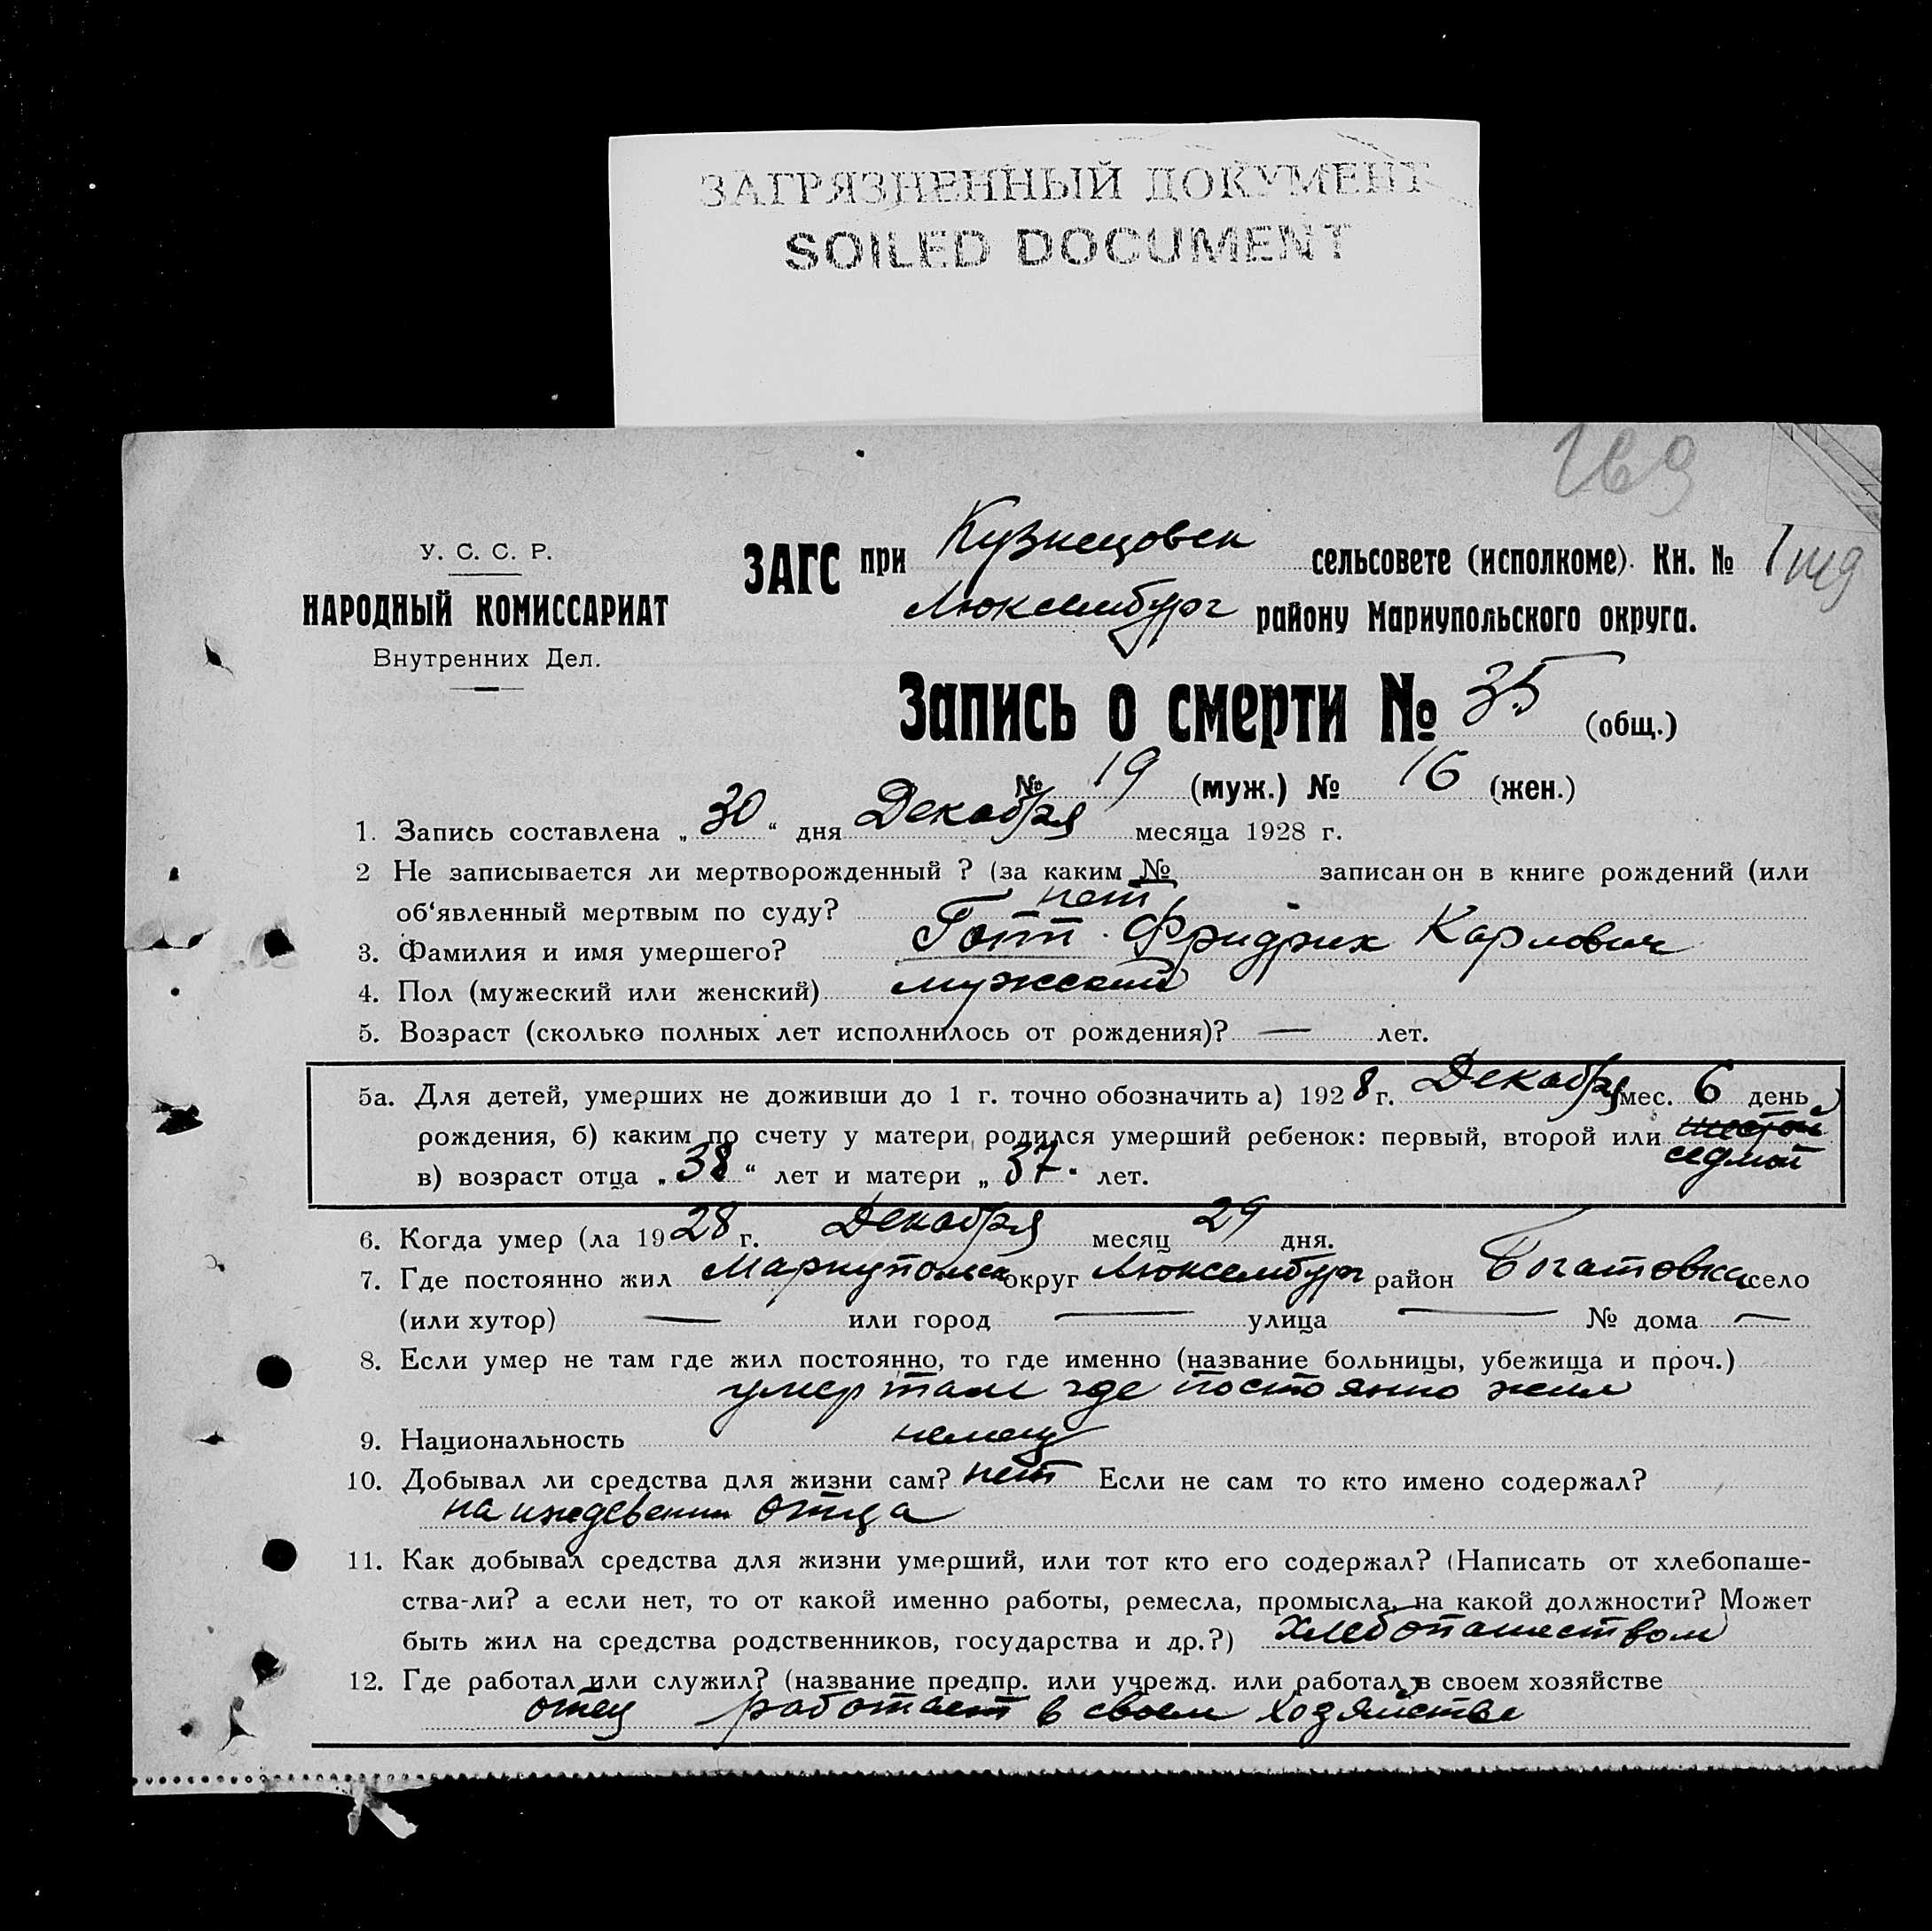 ЗАГРЯЗНЕННЫЙ ДОКУМЕНТ
SOILED DOCUMENT
169
У. С. С. Р.
НАРОДНЫЙ КОМИССАРИАТ
Внутренних Дел.
ЗАГС при Кузнецовск сельсовете (исполкоме). Кн. №
Люксембург району Мариупольского округа.
Запись о смерти № 35 (общ.)
№ 19 (муж.) № 16 (жен.)
1. Запись составлена „30“ дня Декабря месяца 1928 г.
2 Не записывается ли мертворожденный ? (за каким № записан он в книге рождений (или
об‘явленный мертвым по суду? нет
3. Фамилия и имя умершего? Готт Фридрих Карлович
4. Пол (мужеский или женский) мужеский
5. Возраст (сколько полных лет исполнилось от рождения)? — лет.
5а. Для детей, умерших не доживши до 1 г. точно обозначить а) 1928 г. Декабря мес. 6 день
рождения, б) каким по счету у матери родился умерший ребенок: первый, второй или шестой
седмой
в) возраст отца „38“ лет и матери „37“ лет.
6. Когда умер (ла 1928 г. Декабря месяц 29 дня.
7. Где постоянно жил Мариупольск округ Люксембург район Богатовка село
(или хутор) — или город — улица — № дома —
8. Если умер не там где жил постоянно, то где именно (название больницы, убежища и проч.)
умер там где постоянно жил
9. Национальность немец
10. Добывал ли средства для жизни сам? нет Если не сам то кто имено содержал?
на иждевении отца
11. Как добывал средства для жизни умерший, или тот кто его содержал? (Написать от хлебопаше-
ства-ли? а если нет, то от какой именно работы, ремесла, промысла, на какой должности? Может
быть жил на средства родственников, государства и др.?) Хлебопашеством
12. Где работал или служил? (название предпр. или учрежд. или работал в своем хозяйстве
отец работает в своем хозяйстве